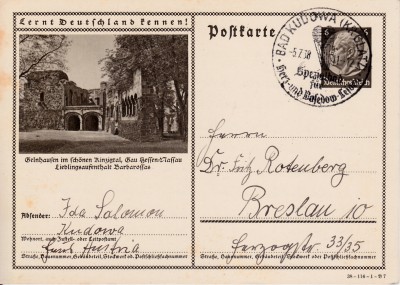 Lernt Deutschland kennen!
Postkarte
BAD KUDOWA (KR GLATZ)
-5.7.38
Spezialbad
für
Herz- und Basedow-Leiden
6
6
Deutsches Reich
Gelnhausen im schönen Kinzigtal, Gau Hessen-Nassau
Lieblingsaufenthalt Barbarossas
Absender: Ida Salomon
Kudowa
Wohnort, auch Zustell- oder Leitpostamt
Haus Austria
Straße, Hausnummer, Gebäudeteil, Stockwerk od. Postschließfachnummer
Herrn
Dr. Fritz Rotenberg
Breslau 10
Herzogstr. 33/35
Straße, Hausnummer, Gebäudeteil, Stockwerk oder Postschließfachnummer